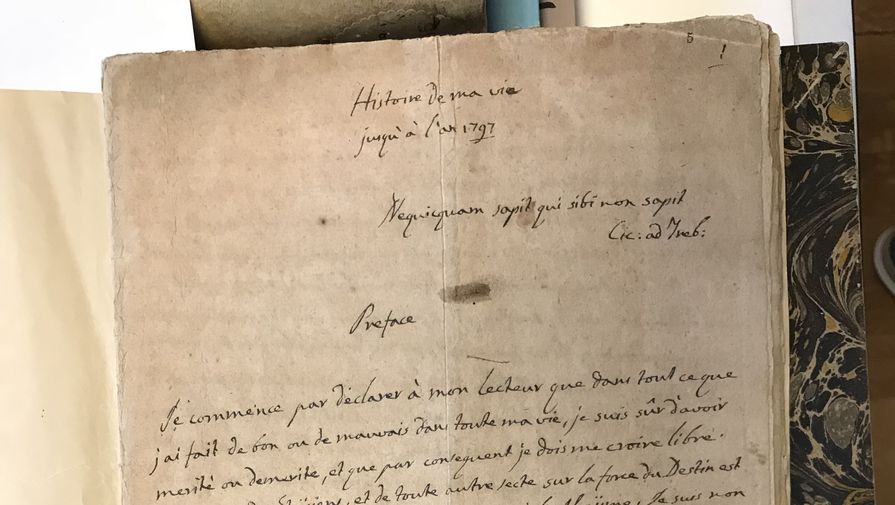 5
!
Histoire de ma vie
jusqu'à l'an 1797
Nequicquam sapit qui sibi non sapit
Cic: ad Treb:
Preface
Je commence par declarer à mon lecteur que dans tout ce que
j'ai fait de bon ou de mauvais dans toute ma vie, je suis sûr d'avoir
merité ou demerité, et que par consequent je dois me croire libre.
et de toute autre secte sur la force du Destin est
Je suis non